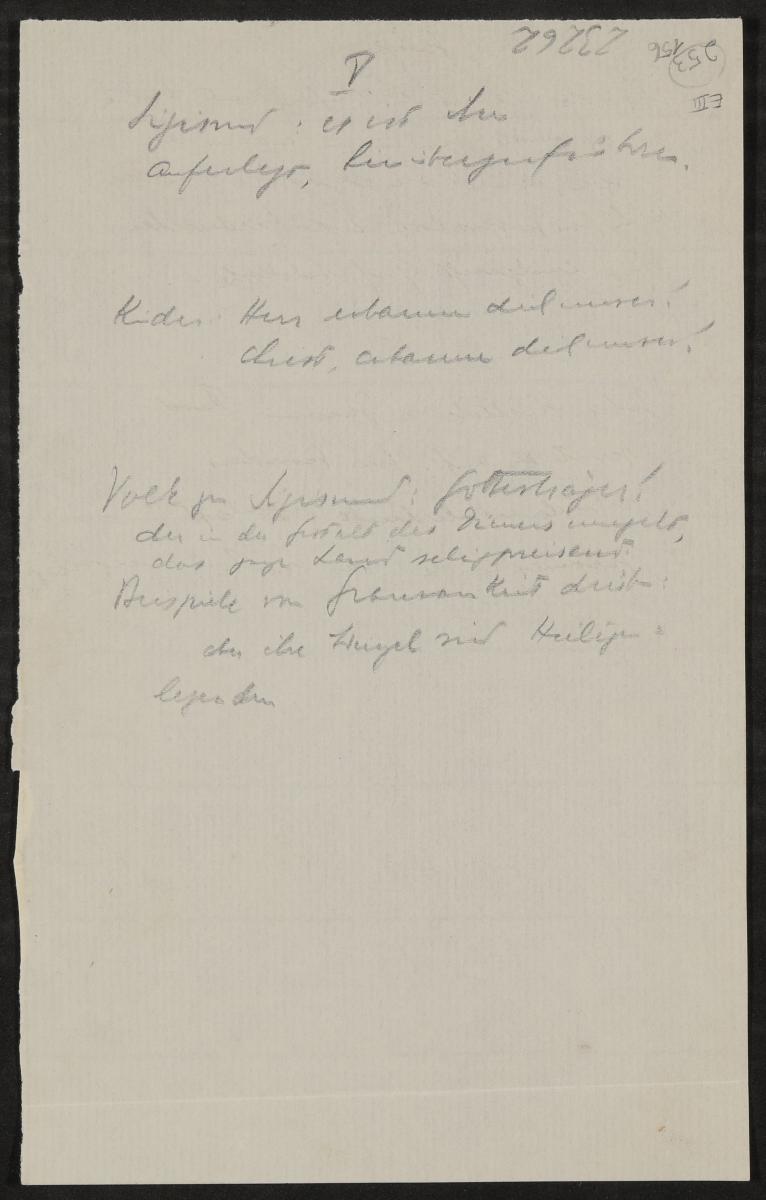 23262
253
156
E III
V
Sigismund: es ist ihm
auferlegt, hinüberzuführen.
Kinder: Herr erbarme dich unser!
Christ, erbarme dich unser!
Volk zu Sigismund: Gottesträger!
der in der Gestalt des Dieners umgeht,
das ganze Land seligpreisend.
Beispiele von Grausamkeit
aber ihre Engel sind Heiligen=
legenden